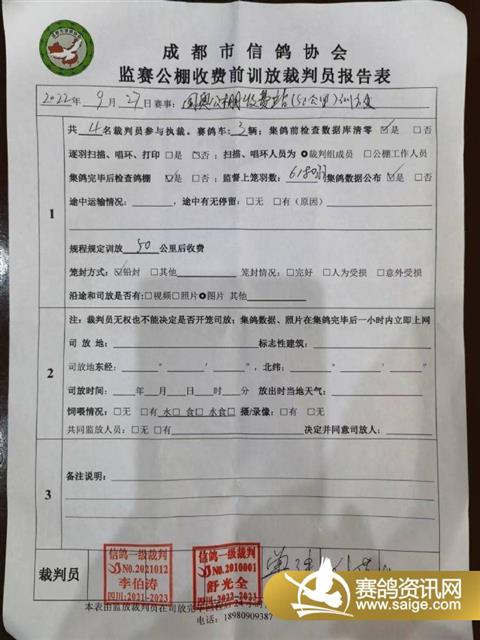 成都市信鸽协会
监赛公棚收费前训放裁判员报告表
2022年9月27日赛事：国奥公棚收费站(52公里)训放
共4名裁判员参与执裁。赛鸽车：3辆；集鸽前检查数据库清零 ☑是 □否
逐羽扫描、唱环、打印 □是 □否；扫描、唱环人员为 裁判组成员 □公棚工作人员
集鸽完毕后检查鸽棚 ☑是 □否 监督上笼羽数：6180羽 集鸽数据公布 ☑是 □否
途中运输情况： ，途中有无停留：□无 □有（原因）
1
规程规定训放50公里后收费
笼封方式：☑铅封 □其他 笼封情况：□完好 □人为受损 □意外受损
沿途和司放是否有：□视频□照片 图片 其他
注：裁判员无权也不能决定是否开笼司放；集鸽数据、照片在集鸽完毕后一小时内立即上网
司放地： 标志性建筑：
2
司放地东经： ° ′ ″，北纬： ° ′ ″
司放时间： 年 月 日 时 分 放出时当地天气：
饲喂情况：□无 □有 水□ 食□ 水食□ 摄/录像：□有 □无
共同监放人员：□无 □有 决定并同意司放人：
备注说明：
3
裁判员
信鸽一级裁判
NO.2021012
李伯涛
四川:2021-2023
信鸽一级裁判
NO.2010001
舒光全
四川:2022-2023
本表由监放裁判员在司放完
电话：18980909387
赛鸽资讯网
www.saige.com